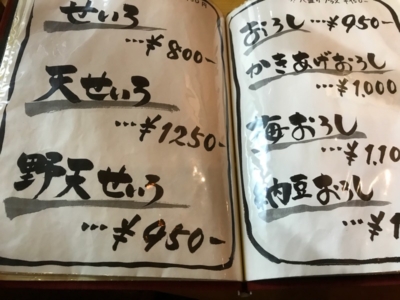 せいろ
…¥800-
天せいろ
…¥1250-
野天せいろ
…¥950-
おろし…¥950-
かきあげおろし
…¥1,000
梅おろし
…¥1,10
納豆おろし
…¥1